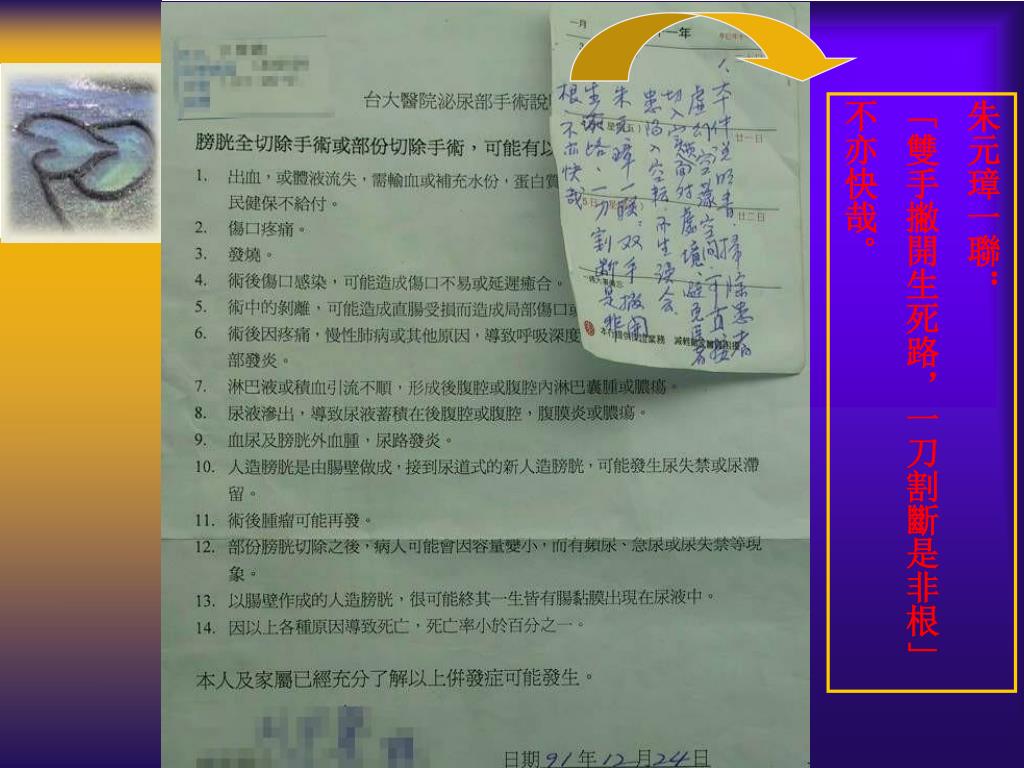 台大醫院泌尿部手術說
膀胱全切除手術或部份切除手術，可能有以
1. 出血，或體液流失，需輸血或補充水份，蛋白質
民健保不給付。
2. 傷口疼痛。
3. 發燒。
4. 術後傷口感染，可能造成傷口不易或延遲癒合。
5. 術中的剝離，可能造成直腸受損而造成局部傷口或
6. 術後因疼痛，慢性肺病或其他原因，導致呼吸深度
部發炎。
7. 淋巴液或積血引流不順，形成後腹腔或腹腔內淋巴囊腫或膿瘍。
8. 尿液滲出，導致尿液蓄積在後腹腔或腹腔，腹膜炎或膿瘍。
9. 血尿及膀胱外血腫，尿路發炎。
10. 人造膀胱是由腸壁做成，接到尿道式的新人造膀胱，可能發生尿失禁或尿滯
留。
11. 術後腫瘤可能再發。
12. 部份膀胱切除之後，病人可能會因容量變小，而有頻尿、急尿或尿失禁等現
象。
13. 以腸壁作成的人造膀胱，很可能終其一生皆有腸黏膜出現在尿液中。
14. 因以上各種原因導致死亡，死亡率小於百分之一。
本人及家屬已經充分了解以上併發症可能發生。
日期91年12月24日
一月
一年
廿一日
廿二日
本件說明書，掃除患者
朱元璋一聯 双手撇開
生死路、一刀割斷是非
根不亦快哉
朱元璋一聯：
「雙手撇開生死路，一刀割斷是非根」
不亦快哉。